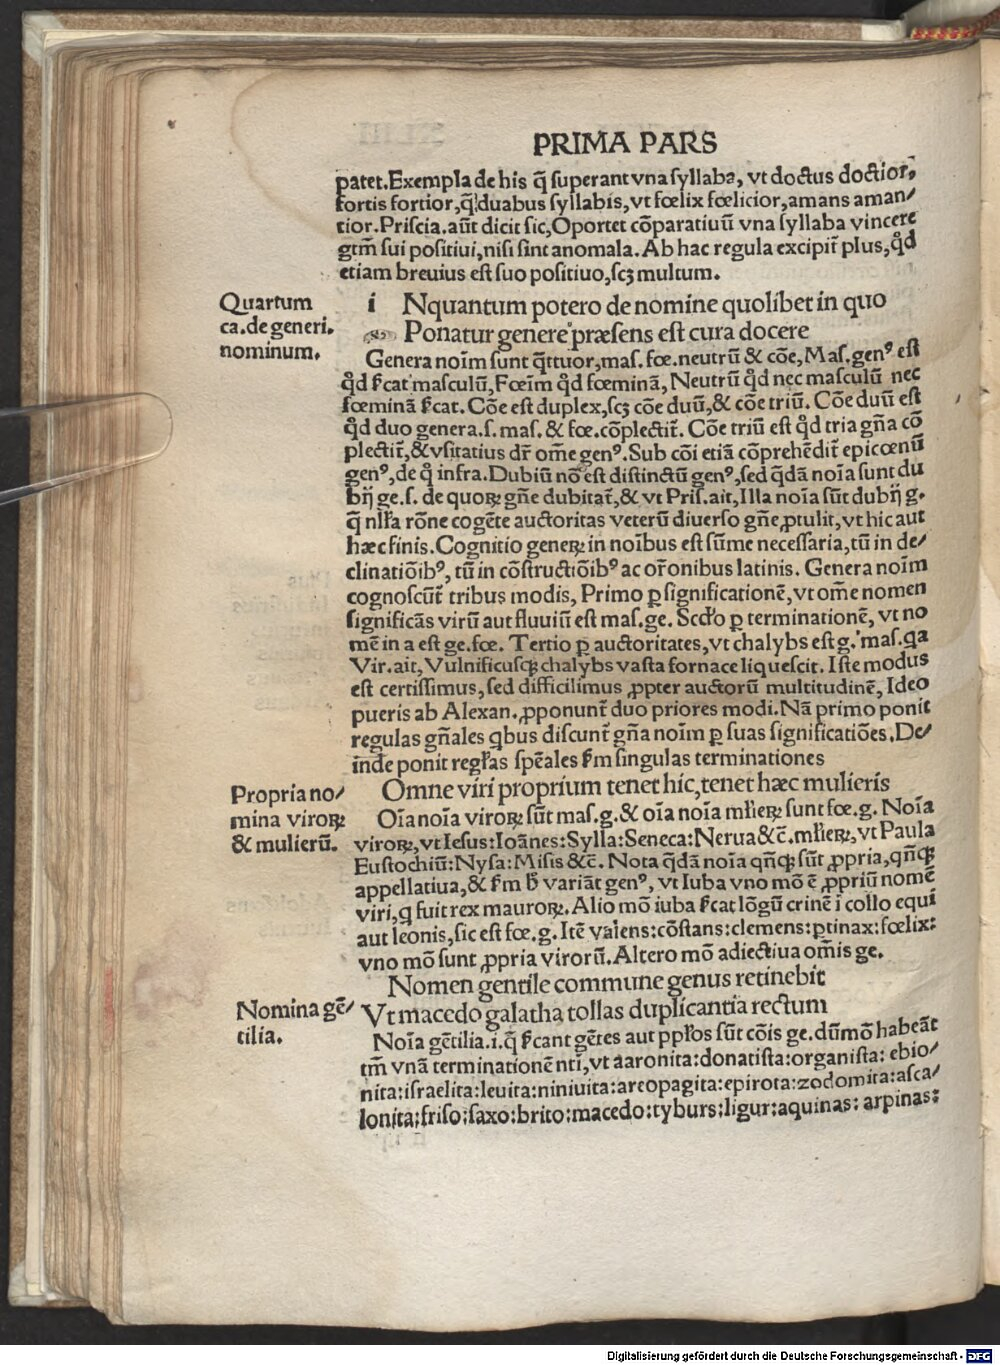 PRIMA PARS
patet. Exempla de his q̃ superant vna syllaba, vt doctus doctior,
fortis fortior, q̃ duabus syllabis, vt fœlix fœlicior, amans aman/
tior. Priscia. aũt dicit sic, Oportet cõparatiuũ vna syllaba vincere
gtm̃ sui positiui, nisi sint anomala. Ab hac regula excipit̃ plus, qd̉
etiam breuius est suo positiuo, scꝫ multum.
Quartum
ca. de generi.
nominum.
i Nquantum potero de nomine quolibet in quo
Ponatur genereꝰ præsens est cura docere
Genera noĩm sunt q̃ttuor, mas. fœ. neutrũ & cõe, Mas. genꝰ est
qd̉ s̃cat masculũ, Fœĩm qd̉ fœminã, Neutrũ qd̉ nec masculũ nec
fœminã s̃cat. Cõe est duplex, scꝫ cõe duũ, & cõe triũ. Cõe duũ est
qd̉ duo genera. s. mas. & fœ. cõplectit̃. Cõe triũ est qd̉ tria gñа cõ
plectit̃, & vsitatius dr̃ om̃e genꝰ. Sub cõi etiã cõprehẽdit̃ epicœnũ
genꝰ, de q̉ infra. Dubiũ nõ est distinctũ genꝰ, sed qd̃ã noĩa sunt du
bij ge. s. de quoꝝ gñe dubitat̃, & vt Pris. ait, Illa noĩa sũt dubij g.
q̃ nl̃la rõne cogẽte auctoritas veterũ diuerso gñe ꝓtulit, vt hic aut
hæc finis. Cognitio geneꝝ in noĩbus est sũme necessaria, tũ in de/
clinatiõibꝰ, tũ in cõstructiõibꝰ ac or̃onibus latinis. Genera noĩm
cognoscũt̃ tribus modis, Primo ꝑ significationẽ, vt om̃e nomen
significãs virũ aut fluuiũ est mas. ge. Scd̃o ꝑ terminationẽ, vt no
mẽ in a est ge. fœ. Tertio ꝑ auctoritates, vt chalybs est g. mas. qa
Vir. ait, Vulnificusqꝫ chalybs vasta fornace liquescit. Iste modus
est certissimus, sed difficilimus ꝓpter auctorũ multitudinẽ, Ideo
pueris ab Alexan. ꝓponunt̃ duo priores modi. Nã primo ponit
regulas gñales qbus discunt̃ gña noĩm ꝑ suas significatiões. De/
inde ponit regl̃as spẽales s̃m singulas terminationes
Propria no/
mina viroꝝ
& mulierũ.
Omne viri proprium tenet hic, tenet hæc mulieris
Oĩa noĩa viroꝝ sũt mas. g. & oĩa noĩa ml̃ieꝝ sunt fœ. g. Noĩa
viroꝝ, vt Iesus: Ioãnes: Sylla: Seneca: Nerua &c̃. ml̃ieꝝ, vt Paula
Eustochiũ: Nysa: Misis &c̃. Nota qd̃ã noĩa qñqꝫ sũt ꝓpria, qñqꝫ
appellatiua, & s̃m h̃ variãt genꝰ, vt Iuba vno mõ ẽ ꝓpriũ nomẽ
viri, q fuit rex mauroꝝ. Alio mõ iuba s̃cat lõgũ crinẽ ĩ collo equi
aut leonis, sic est fœ. g. Itẽ valens: cõstans: clemens: ꝑtinax: fœlix:
vno mõ sunt ꝓpria virorũ. Altero mõ adiectiua om̃is ge.
Nomen gentile commune genus retinebit
Nomina gẽ/
tilia.
Vt macedo galatha tollas duplicantia rectum
Noĩa gẽtilia. i. q̃ s̃cant gẽtes aut ppl̃os sũt cõis ge. dũmõ habeãt
tm̃ vnã terminationẽ nt̃i, vt aaronita: donatista: organista: ebio/
nita: israelita: leuita: niniuita: areopagita: epirota: zodomita: asca/
lonita: friso: saxo: brito: macedo: tyburs: ligur: aquinas: arpinas:
Digitalisierung gefördert durch die Deutsche Forschungsgemeinschaft - DFG